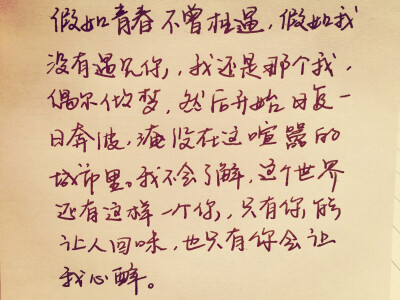 假如青春不曾相遇,假如我
没有遇见你,我还是那个我,
偶尔做梦,然后开始日复一
日奔波,淹没在这喧嚣的
城市里。我不会了解,这个世界
还有这样一个你,只有你能
让人回味,也只有你会让
我心醉。